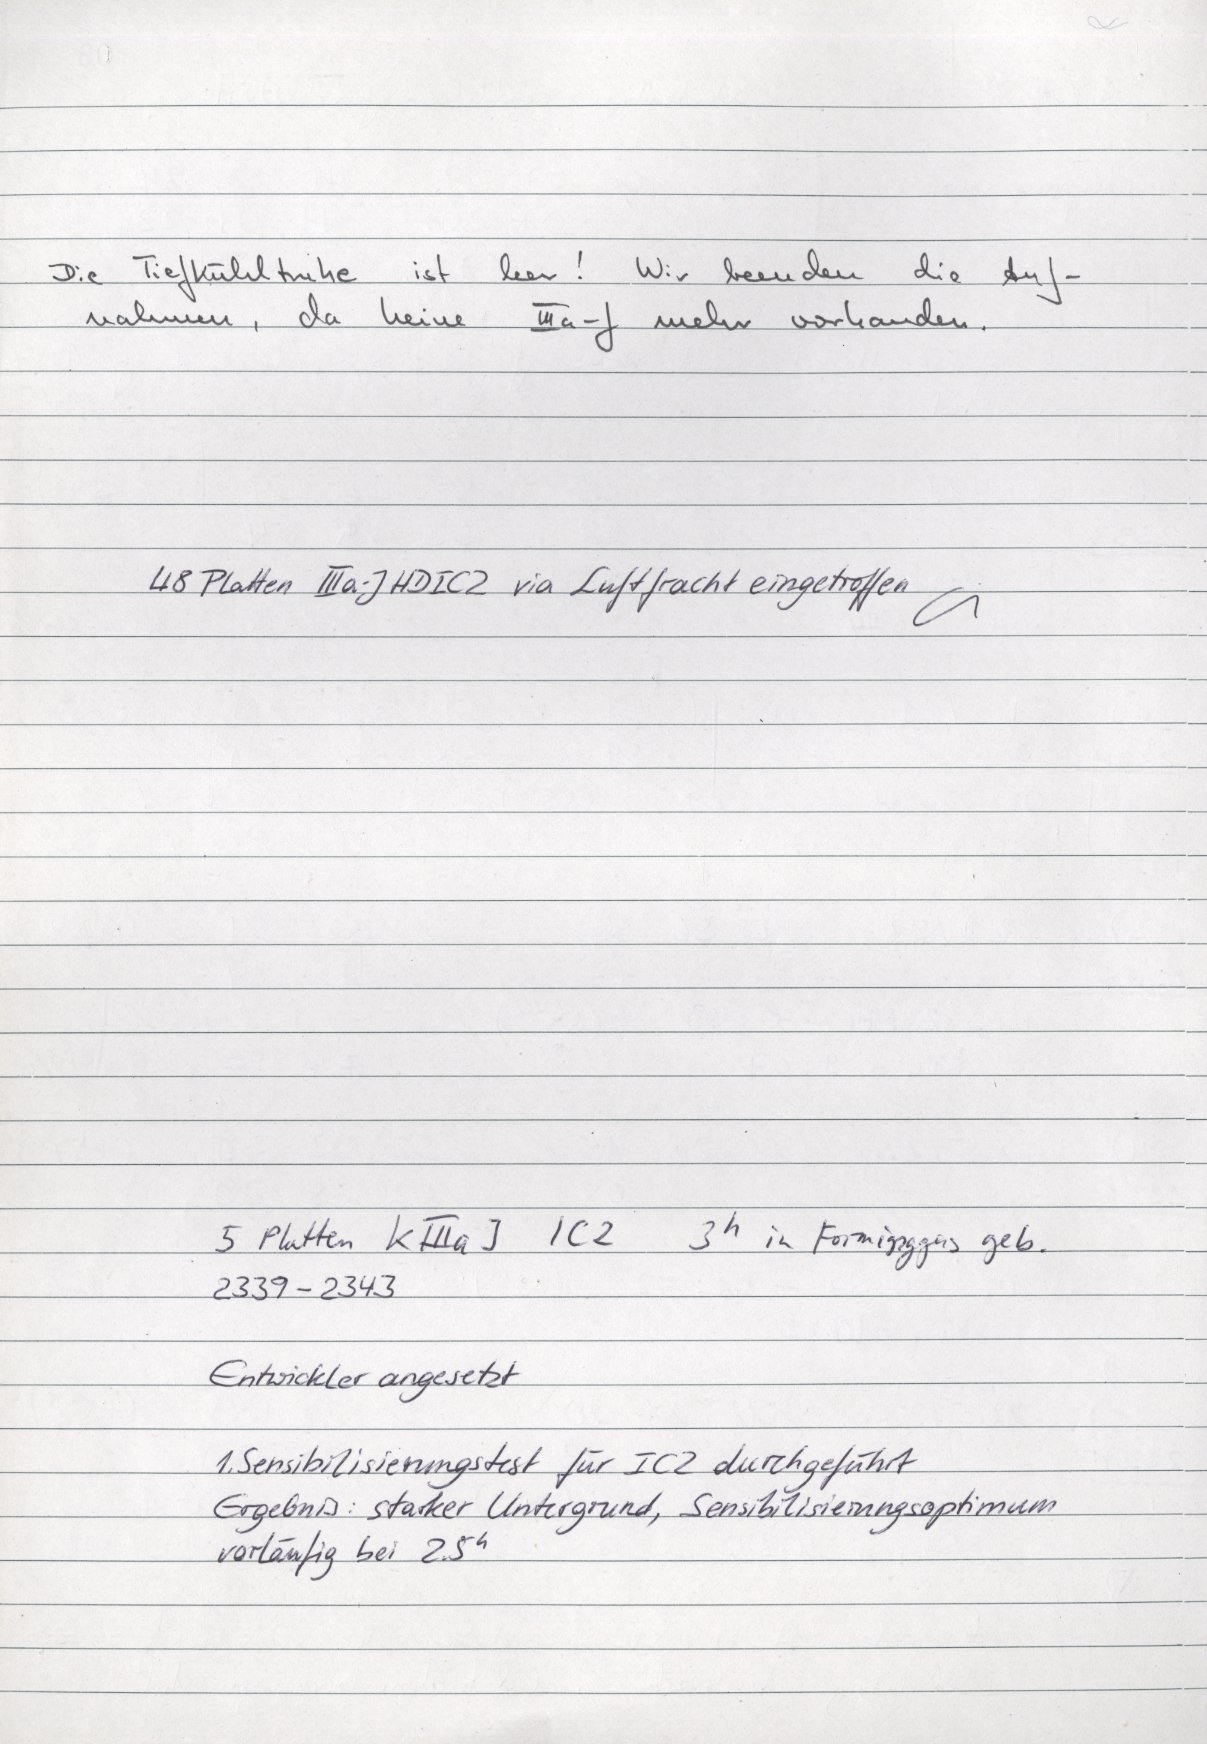 Die Tiefkühltruhe ist leer! Wir beenden die Auf-
nahmen, da keine IIIa-J mehr vorhanden.
48 Platten IIIa-J HDIC2 via Luftfracht eingetroffen
5 Platten KIIIaJ IC2 3h in Forminggas geb.
2339-2343
Entwickler angesetzt
1.Sensibilisierungstest für IC2 durchgeführt
Ergebnis: starker Untergrund, Sensibilisierungsoptimum
vorläufig bei 2.5h